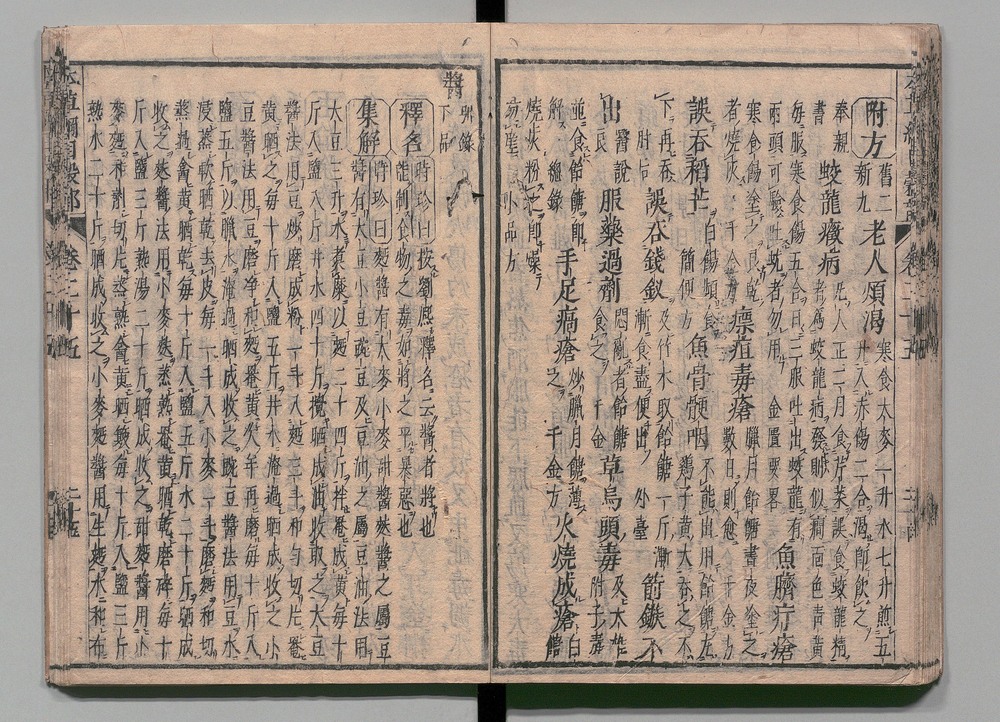 附方 舊二新九 老人煩渴 寒食大麥一升水七升煎五
升入赤餳二合渴即飲之
奉親書 蛟龍癥病 凡人正二月食芹菜誤食蛟龍精
者為蛟龍病發則似癇面色青黃
每服寒食餳五合日三服吐出蛟龍有
兩頭可驗吐蚘者勿用 金匱要畧 魚臍疔瘡
寒食餳塗之良乾
者燒灰 瘭疽毒瘡 臘月飴餹晝夜塗之
數日則愈 千金方
誤吞稻芒 白餳頻食
簡便方 魚骨骾咽 不能出用飴餹丸
雞子黃大吞之不
下再吞
肘后 誤吞錢釵 及竹木取飴餹一斤漸
漸食盡便出 外臺 箭鏃不
出
醫說 服藥過劑 悶亂者飴餹
食之千金 草烏頭毒 及天雄
附子毒
並食飴餹即
解 總錄 手足瘑瘡 炒臘月餹薄
之 千金方 火燒成瘡 白餹
燒灰粉之即燥
易瘥 小品方
醬 別錄下品
釋名 時珍曰按劉熙釋名云醬者將也
能制食物之毒如將之平暴惡也
集解 時珍曰麵醬有大麥小麥甜醬麩醬之屬豆
醬有大豆小豆豌豆及豆油之屬豆油法用
大豆三斗水煮糜以麵二十四斤拌罨成黃每十
斤入鹽八斤井水四十斤攪晒成油收取之大豆
醬法用豆炒磨成粉一斗入麵三斗和勻切片罨
黃晒之每十斤入鹽五斤井水淹過晒成收之小
豆醬法用豆磨淨和麵罨黃次年再磨每十斤入
鹽五斤以臘水淹過晒成收之豌豆醬法用豆水
浸蒸軟晒乾去皮每一斗入小麥一斗磨麵和切
蒸過罨黃晒乾每十斤入鹽五斤水二十斤晒成
收之麩醬法用小麥麩蒸熟罨黃晒乾磨碎每十
斤入鹽三斤熟湯二十斤晒成收之甜麵醬用小
麥麵和劑切片蒸熟罨黃晒簸每十斤入鹽三斤
熟水二十斤晒成收之小麥麵醬用生麵水和布